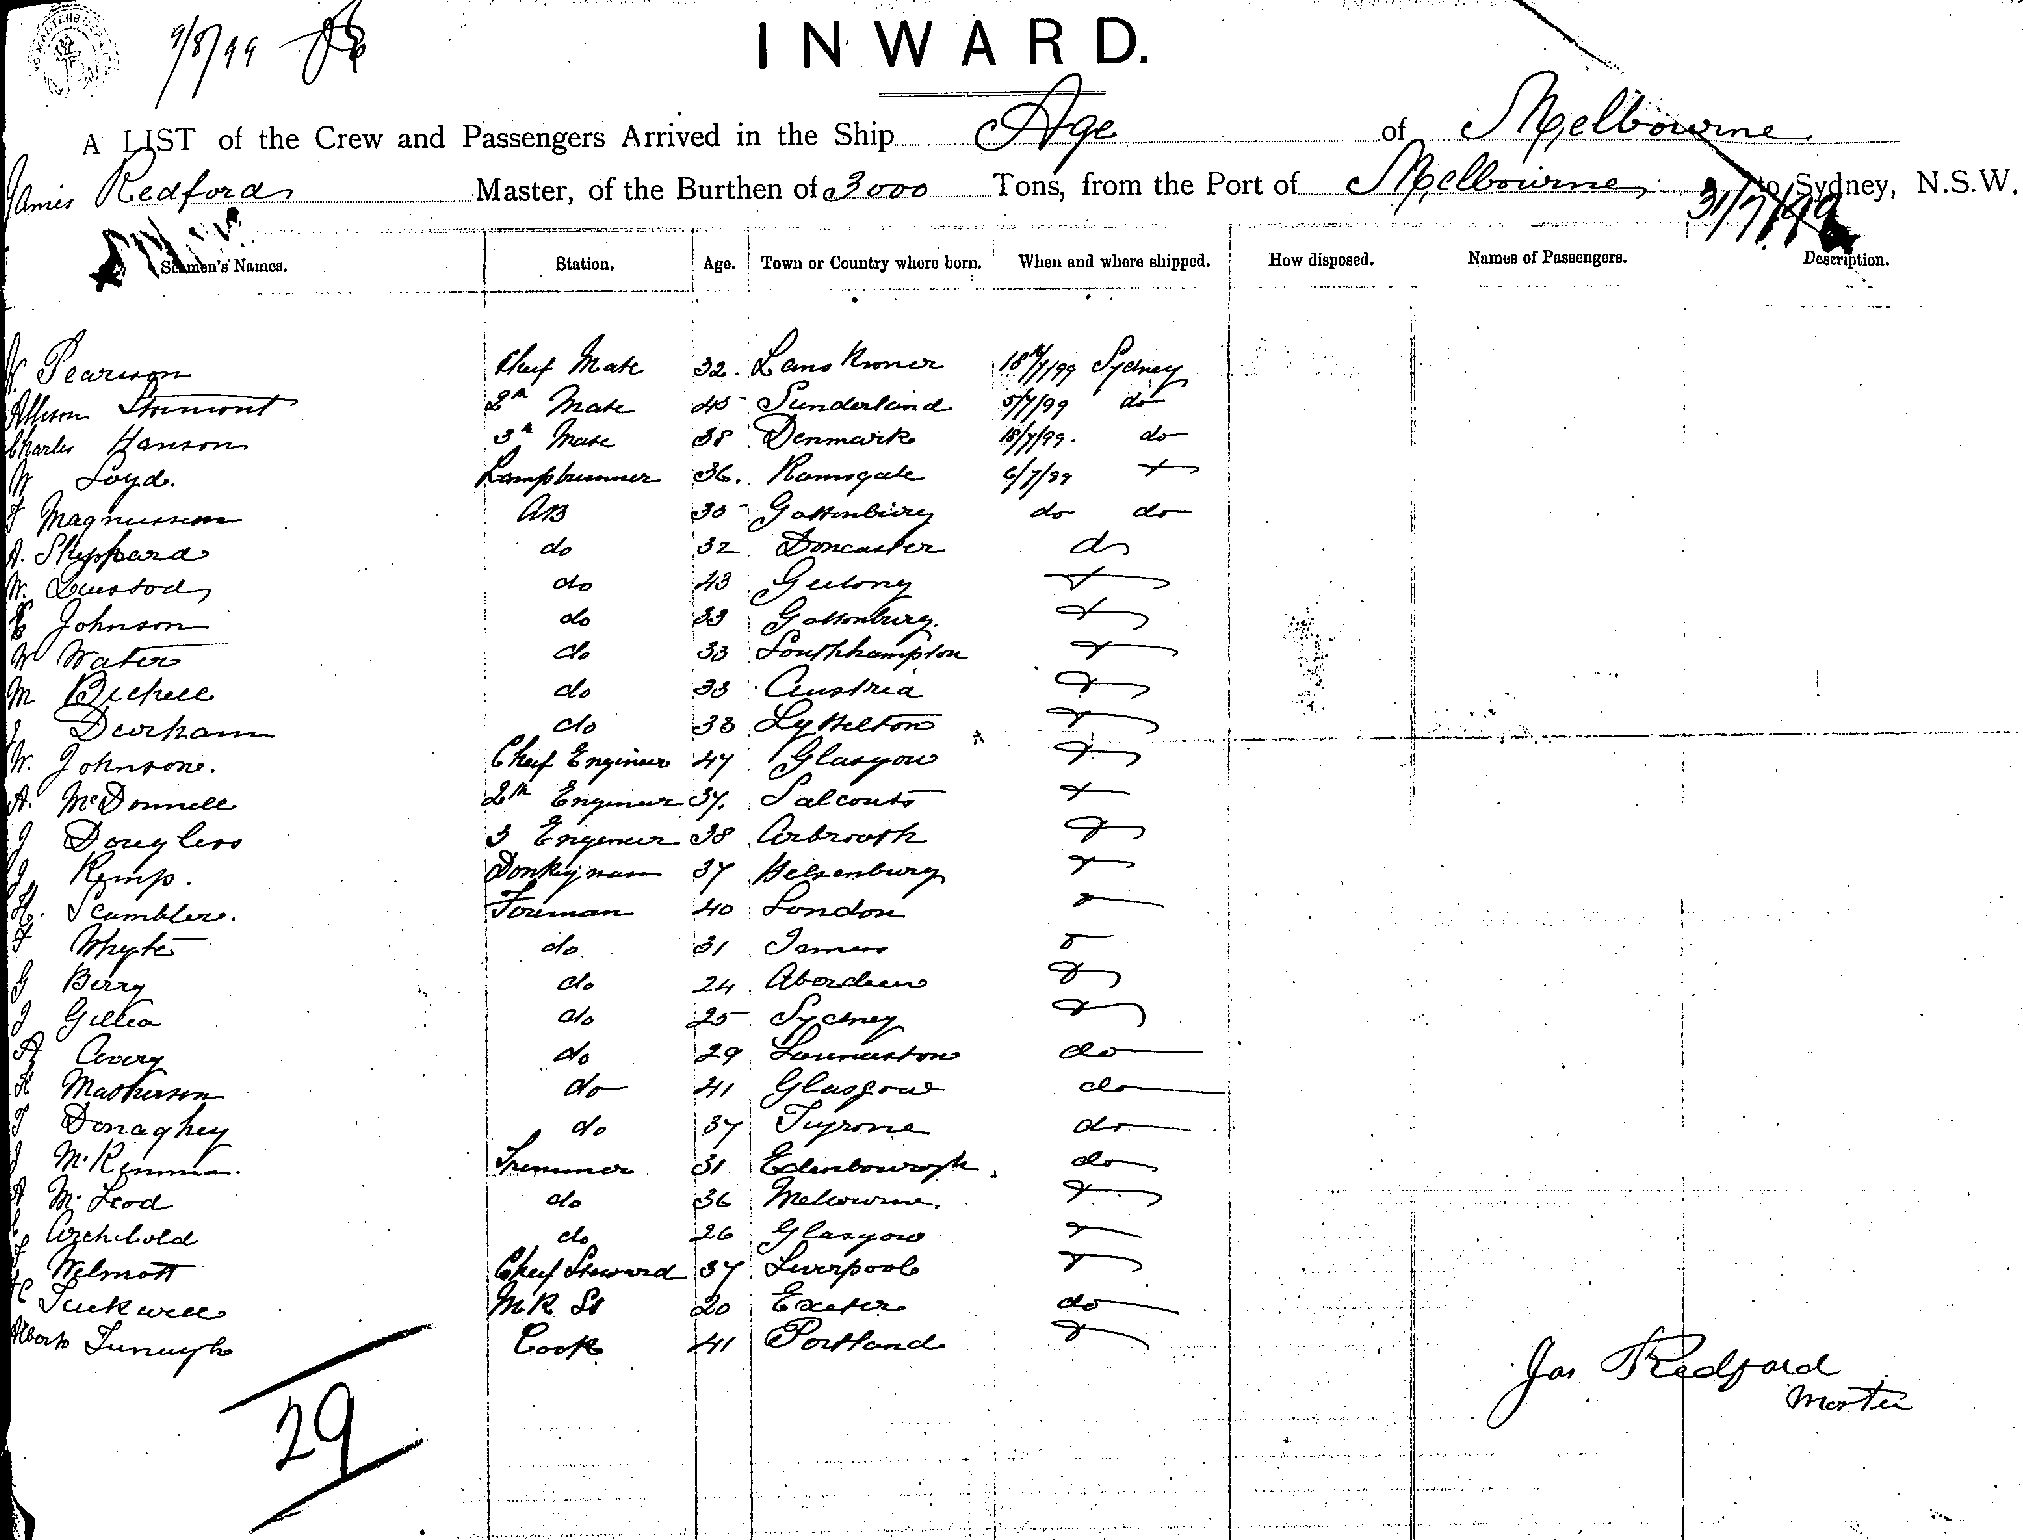 9/8/99
INWARD.
A LIST of the Crew and Passengers Arrived in the Ship Age of Melbourne
James Redford Master, of the Burthen of 3000 Tons, from the Port of Melbourne to Sydney, N.S.W.
31/7/99
Seamen's Names. Station. Age. Town or Country where born. When and where shipped. How disposed. Names of Passengers. Description.
Pearson Chief Mate 32. 18/7/99 Sydney
Allison Stormont 2nd Mate 45 Sunderland 5/7/99 do
Charles Hanson 3rd Mate 38 Denmark 18/7/99. do
W Loyd. Lamptrimmer 36. Ramsgate 6/7/99
Magnusson AB 35 Gottenburg do do
A. Sheppard do 32 Doncaster do
W. do 43 Geelong
Johnson do 33 Gottenburg.
W Water do 33 Southhampton
M do 33 Austria
J Durham do 33 Lyttelton
W. Johnsone. Chief Engineer 47 Glasgow
A. McDonnell 2nd Engineer 37. Salcouts
J Douglass 3 Engineer 38 Arbroath
J Kemp. Donkeyman 37 Helsenburg
H. Scambler. Fireman 40 London
Whyte do 31
G Berry do 24 Aberdeen
J do 25 Sydney
A Avery do 29 Launceston do
Mathieson do 41 Glasgow do
Donaghey do 37 Tyrone do
J McKinnon. Trimmer 31 Edenbourogh. do
A McLeod do 36 Melbourne.
Archibold do 26 Glasgow
Wilmott Chief Steward 37 Liverpool
Tuckwell M R St 20 Exeter do
Albert Cook 41 Portland
29
Jas Redford
Master